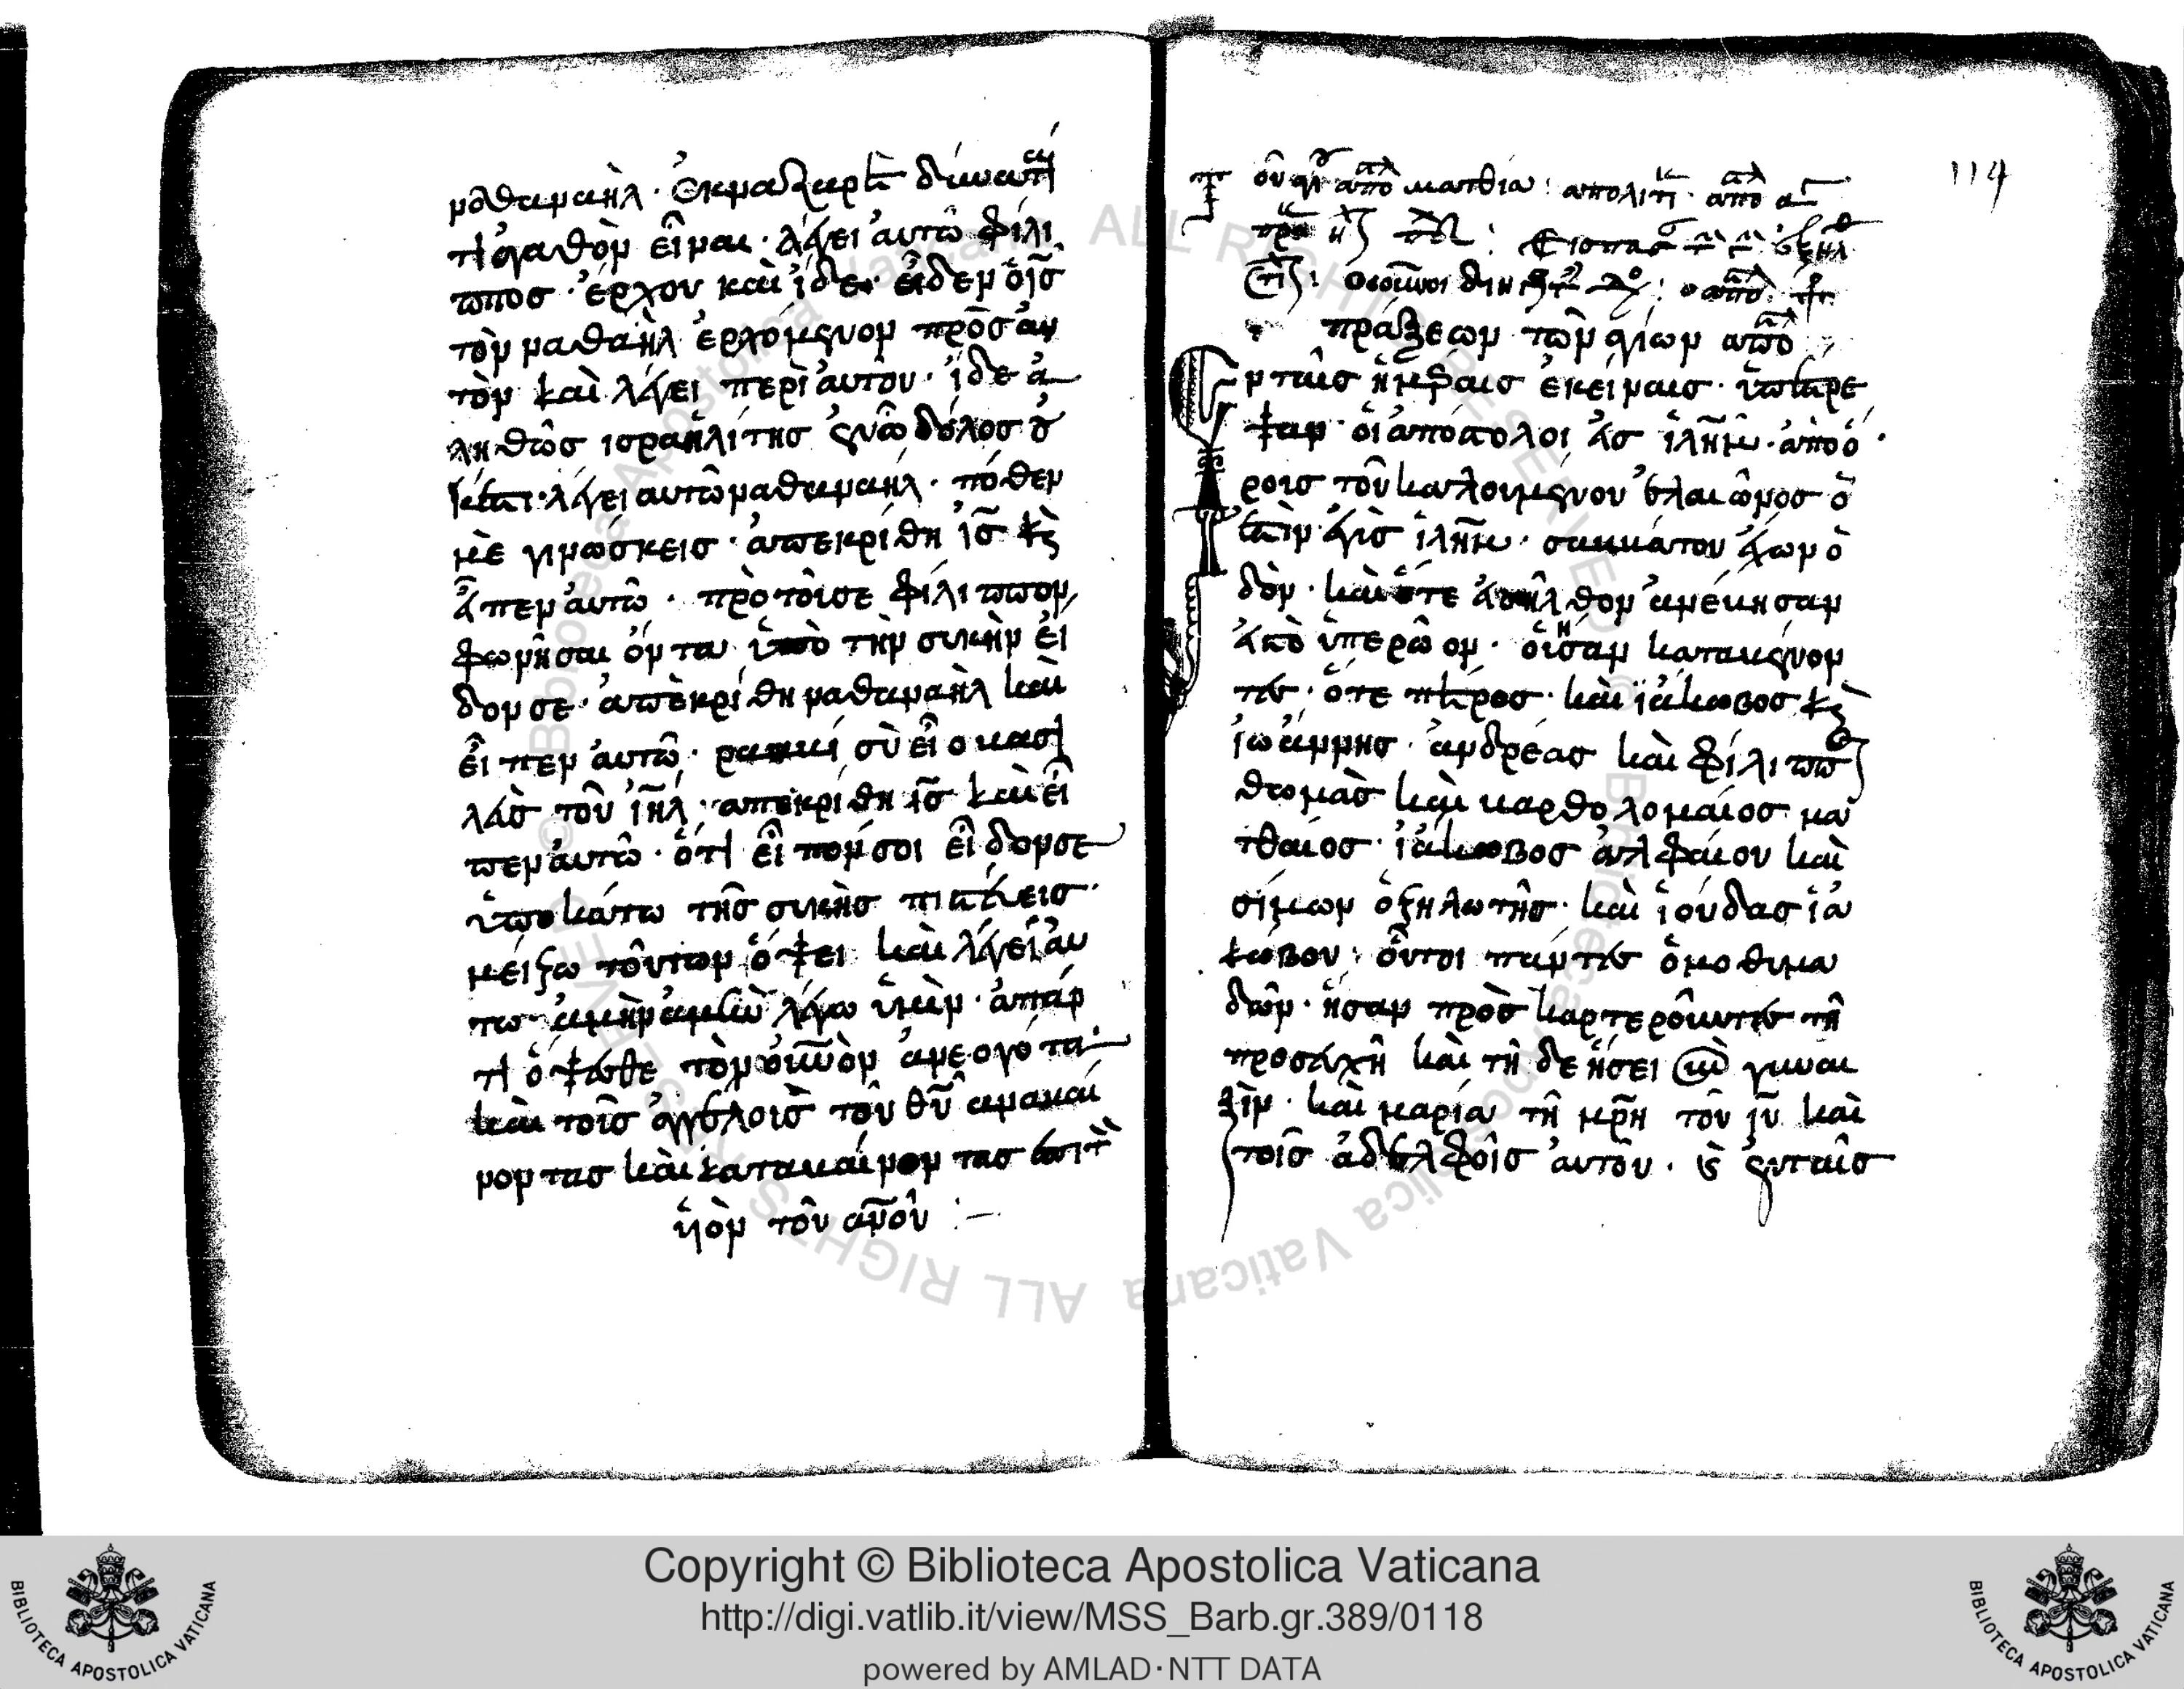 ναθαναήλ · ἐκ ναζαρὲτ δύναταί
τι ἀγαθὸν εἶναι · λέγει αὐτῶ φίλι
ππος · ἔρχου καὶ ἴδε · εἶδεν ὁ ἰ̅ς̅
τὸν ναθαναὴλ ἐρχόμενον πρὸς αὐ
τὸν καὶ λέγει περὶ αὐτου · ἴδε ἀ
ληθῶς ισραηλίτης ἐν ὧ δόλος οὐ
κ ἔστι · λέγει αὐτῶ ναθαναήλ · πόθεν
μὲ γινώσκεις · ἀπεκρίθη ἰ̅ς̅ κὶ
εἶπεν αὐτῶ · πρὸ τοῦ σε φίλιππον
φωνῆσαι ὄντα ὑπὸ τὴν συκὴν εἶ
δον σε · ἀπεκρίθη ναθαναὴλ καὶ
εἶπεν αὐτῶ · ραββί σὺ εἶ ο βασι
λεὺς τοῦ ἰ̅η̅λ̅ · απεκρίθη ἰ̅ς̅ καὶ εἶ
πεν αὐτῶ · ὅτι εἶπον σοι εἶδον σε
ὑποκάτω τῆς συκῆς πιστεύεις ·
μείζω τούτων ὄψει καὶ λέγει αυ
τω ἀμὴν ἀμὴν λέγω ὑμὶν · ἀπάρ
τι ὄψεσθε τὸν οὐ̅ν̅ὸν ἀνεογότα
καὶ τοῖς ἀγγέλοις τοῦ θ̅υ̅ αναβαί
νοντας καὶ καταβαίνοντας ἐπὶ τὸν
ὑὸν τοῦ α̅ν̅ου :—
114
τοῦ ἁγίου ἀποστόλ ματθία
πράξεων τῶν ἁγίων ἀποστόλ
Εν ταῖς ἡμέραις ἐκείναις · ὑπέστρε
ψαν οἱ ἀπόστολοι εἰς ἰ̅λ̅ή̅μ̅ · ἀπὸ ὄ
ρους τοῦ καλουμένου ἐλαιῶνος ὅ
ἐστὶν ἐγγὺς ἰ̅λ̅ή̅μ̅ · σαββάτου ἔχων ὁ
δὸν · καὶ ὅτε εἰσῆλθον ἀνέβησαν
εἰς τὸ ὑπερῶον · οὗ ἦσαν καταμένον
τες · ὅτε πέτρος · καὶ ἰάκωβος κὶ
ἰωάννης · ἀνδρέας καὶ φίλιππος
θωμὰς καὶ βαρθολομαίος μα
τθαίος · ἰάκωβος ἀλφαίου καὶ
σίμων ὁ ζηλωτῆς · καὶ ἰούδας ἰα
κώβου · οὗτοι πάντες ὁμοθυμα
δῶν · ἦσαν πρὸς καρτεροῦντες τῆ
προσευχῆ καὶ τῆ δεήσει σὺν γυναι
ξὶν · καὶ μαρία τῆ μ̅ρ̅η̅ τοῦ ἰ̅υ̅ καὶ
τοῖς ἀδελφοῖς αὐτοῦ · καὶ ἐν ταῖς
Copyright © Biblioteca Apostolica Vaticana
http://digi.vatlib.it/view/MSS_Barb.gr.389/0118
powered by AMLAD·NTT DATA
BIBLIOTECA APOSTOLICA VATICANA
BIBLIOTECA APOSTOLICA VATICANA